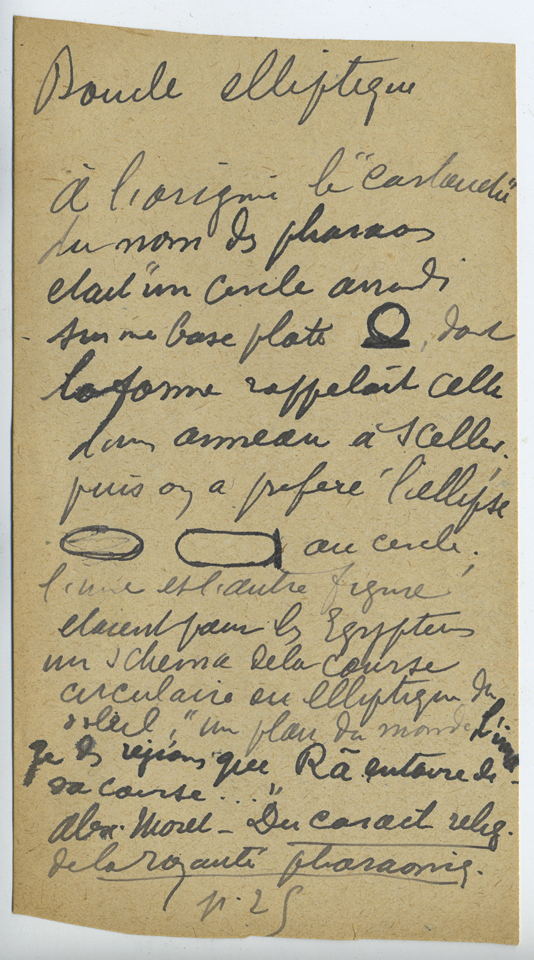 Boucle elliptique
à l'origine le "cartouche"
du nom des pharaos
etait "un cercle arrondi
sur une base plate , dont
la forme rappelait celle
d'un anneau à sceller.
puis on a préféré l'ellipse
au cercle.
l'une et l'autre figure
étaient pour les Egyptiens
un schema de la course
circulaire ou elliptique du
soleil, "un plan du monde L'ima
ge des régions que Râ entoure de
sa course ... "
Alex. Moret - Du caract relig.
de la royauté pharaoniq.
p. 25